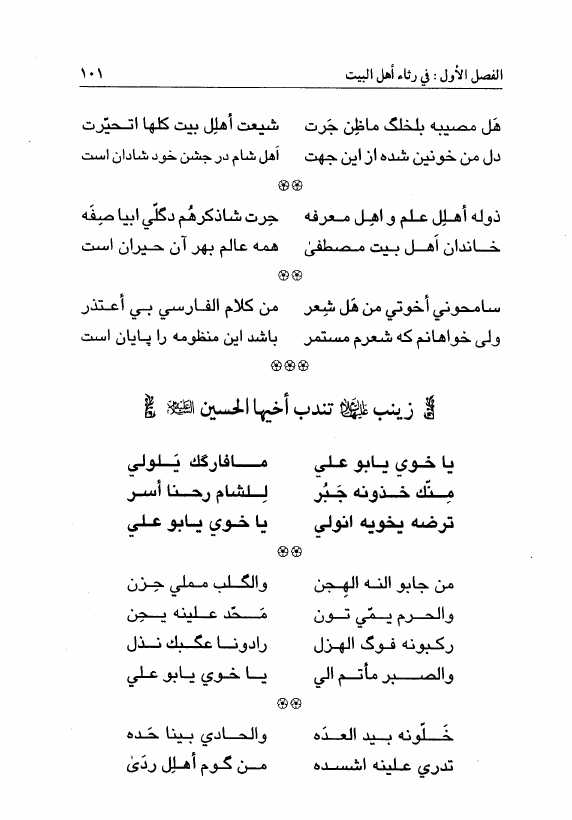 الفصل الأول : في رثاء أهل البيت ١٠١
هَل مصيبه بلخلگ ماظِن جَرت شيعت أهلِل بيت كلها اتـحيّرت
دل من خونين شده از اين جهت اَهل شام در جشن خود شادان است
ذوله أهـلِل عـلـم و اهـل مـعرفه حِرت شاذكر هُم دگلّي ابيا صِفَه
خـاندان اَهـل بـيت مـصطفىٰ همه عالم بهر آن حيران است
سامحوني أخوتي من هَل شِعر من كلام الفـارسي بـي أعـتذر
ولى خواهانم كه شعرم مستمر باشد اين منظومه را پايان است
زينب عليها السلام تندب أخيها الحسين عليه السلام
يا خوي يابو علي مـافارگك يَـلولي
مِـنّك خـذونه جَبُر لِـلشام رحـنا أسر
ترضه يخويه انولي يا خوي يـابو علي
من جابو النـه الهـِجن والگـلب مـملي حِزن
والحـرم يـمّي تـون مَـحّد علـينه يـحِن
ركبونه فـوگ الهزل رادونـا عگـبك نـذل
والصـبر مأتـم الي يـا خوي يـابو علي
خَـلّونه بـيد العـدَه والحادي بـينا حَده
تدري علـينه اشسده مـن گـوم أهـلل ردَىٰ